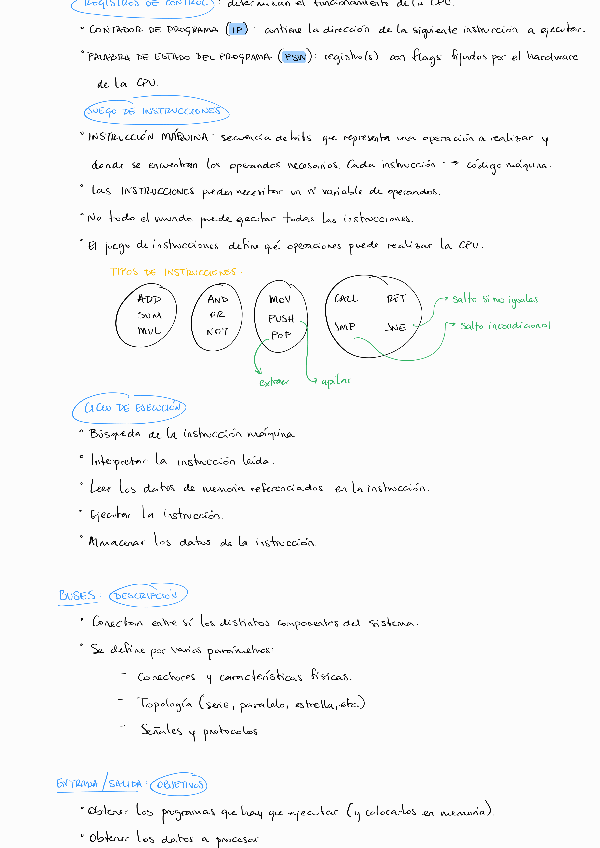 REGISTROS DE CONTROL: determinan el funcionamiento de la CPU.
° CONTADOR DE PROGRAMA (IP): contiene la dirección de la siguiente instrucción a ejecutar.
° PALABRA DE ESTADO DEL PROGRAMA (PSW): registro(s) con flags fijados por el hardware
de la CPU.
JUEGO DE INSTRUCCIONES
° INSTRUCCIÓN MÁQUINA: secuencia de bits que representa una operación a realizar y
donde se encuentran los operandos necesarios. Cada instrucción: → código máquina.
° Las INSTRUCCIONES pueden necesitar un nº variable de operandos.
° No todo el mundo puede ejecutar todas las instrucciones.
° El juego de instrucciones define qué operaciones puede realizar la CPU.
TIPOS DE INSTRUCCIONES:
ADD AND MOV CALL RET → salto si no iguales
SUM OR PUSH JMP JNE → salto incondicional
MUL NOT POP
extraer → apilar
CICLO DE EJECUCIÓN
° Búsqueda de la instrucción máquina
° Interpretar la instrucción leída.
° Leer los datos de memoria referenciados en la instrucción.
° Ejecutar la instrucción.
° Almacenar los datos de la instrucción
BUSES: DESCRIPCIÓN
° Conectan entre sí los distintos componentes del sistema.
° Se define por varios parámetros:
– Conectores y características físicas.
– Topología (serie, paralelo, estrella, etc.)
– Señales y protocolos
ENTRADA/SALIDA: OBJETIVOS
° Obtener los programas que hay que ejecutar (y colocarlos en memoria)
° Obtener los datos a procesar